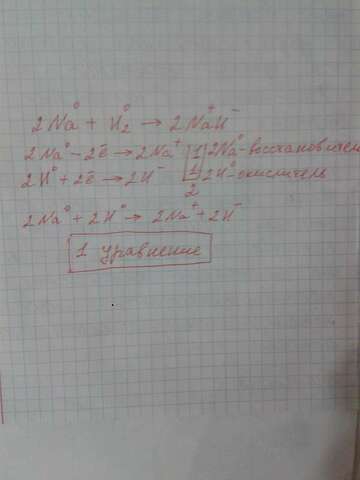 2Na⁰ + H₂⁰ → 2Na⁺H⁻
2Na⁰ - 2ē → 2Na⁺ | 1 | 2Na⁰ - восстановитель
2H⁰ + 2ē → 2H⁻ | 1 | 2H⁰ - окислитель
2
2Na⁰ + 2H⁰ → 2Na⁺ + 2H⁻
1 уравнение